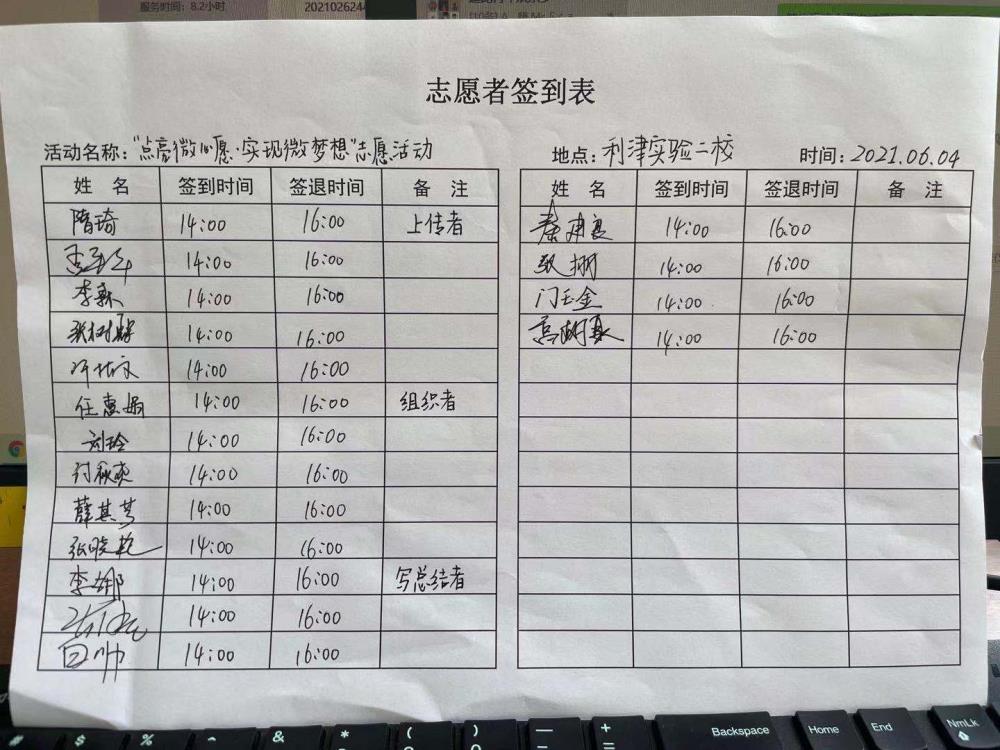 服务时间：8.2小时
志愿者签到表
活动名称："点亮微心愿·实现微梦想"志愿活动 地点：利津实验二校 时间：2021.06.04
姓 名 签到时间 签退时间 备 注 姓 名 签到时间 签退时间 备 注
隋琦 14:00 16:00 上传者 秦建良 14:00 16:00
14:00 16:00 14:00 16:00
李新 14:00 16:00 门玉金 14:00 16:00
14:00 16:00 14:00 16:00
14:00 16:00
任惠娟 14:00 16:00 组织者
刘玲 14:00 16:00
14:00 16:00
薛其芳 14:00 16:00
张晓艳 14:00 16:00
李娜 14:00 16:00 写总结者
14:00 16:00
白帅 14:00 16:00
# $ % & * ( ) — + Backspace Home End NmLk